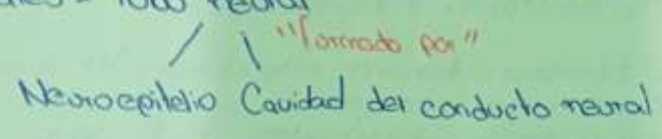 Tubo neural
"formado por"
Neuroepitelio Cavidad del conducto neural